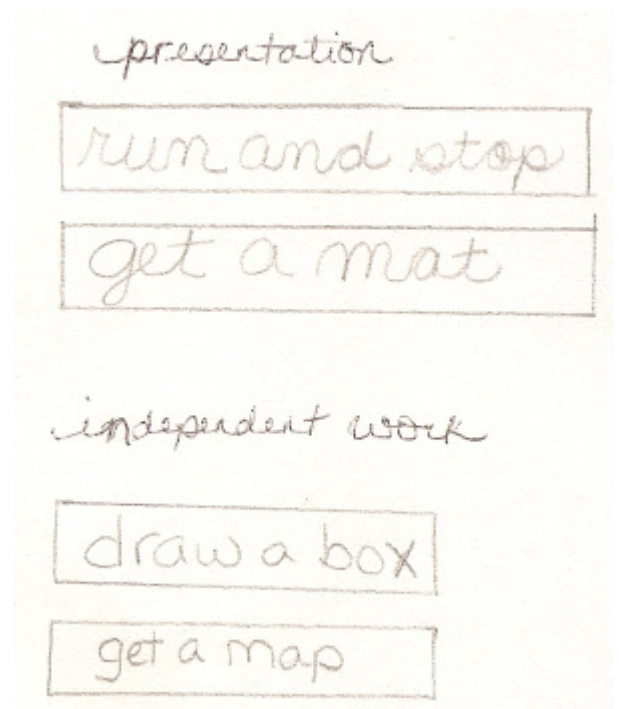 presentation
run and stop
get a mat
independent work
draw a box
get a map